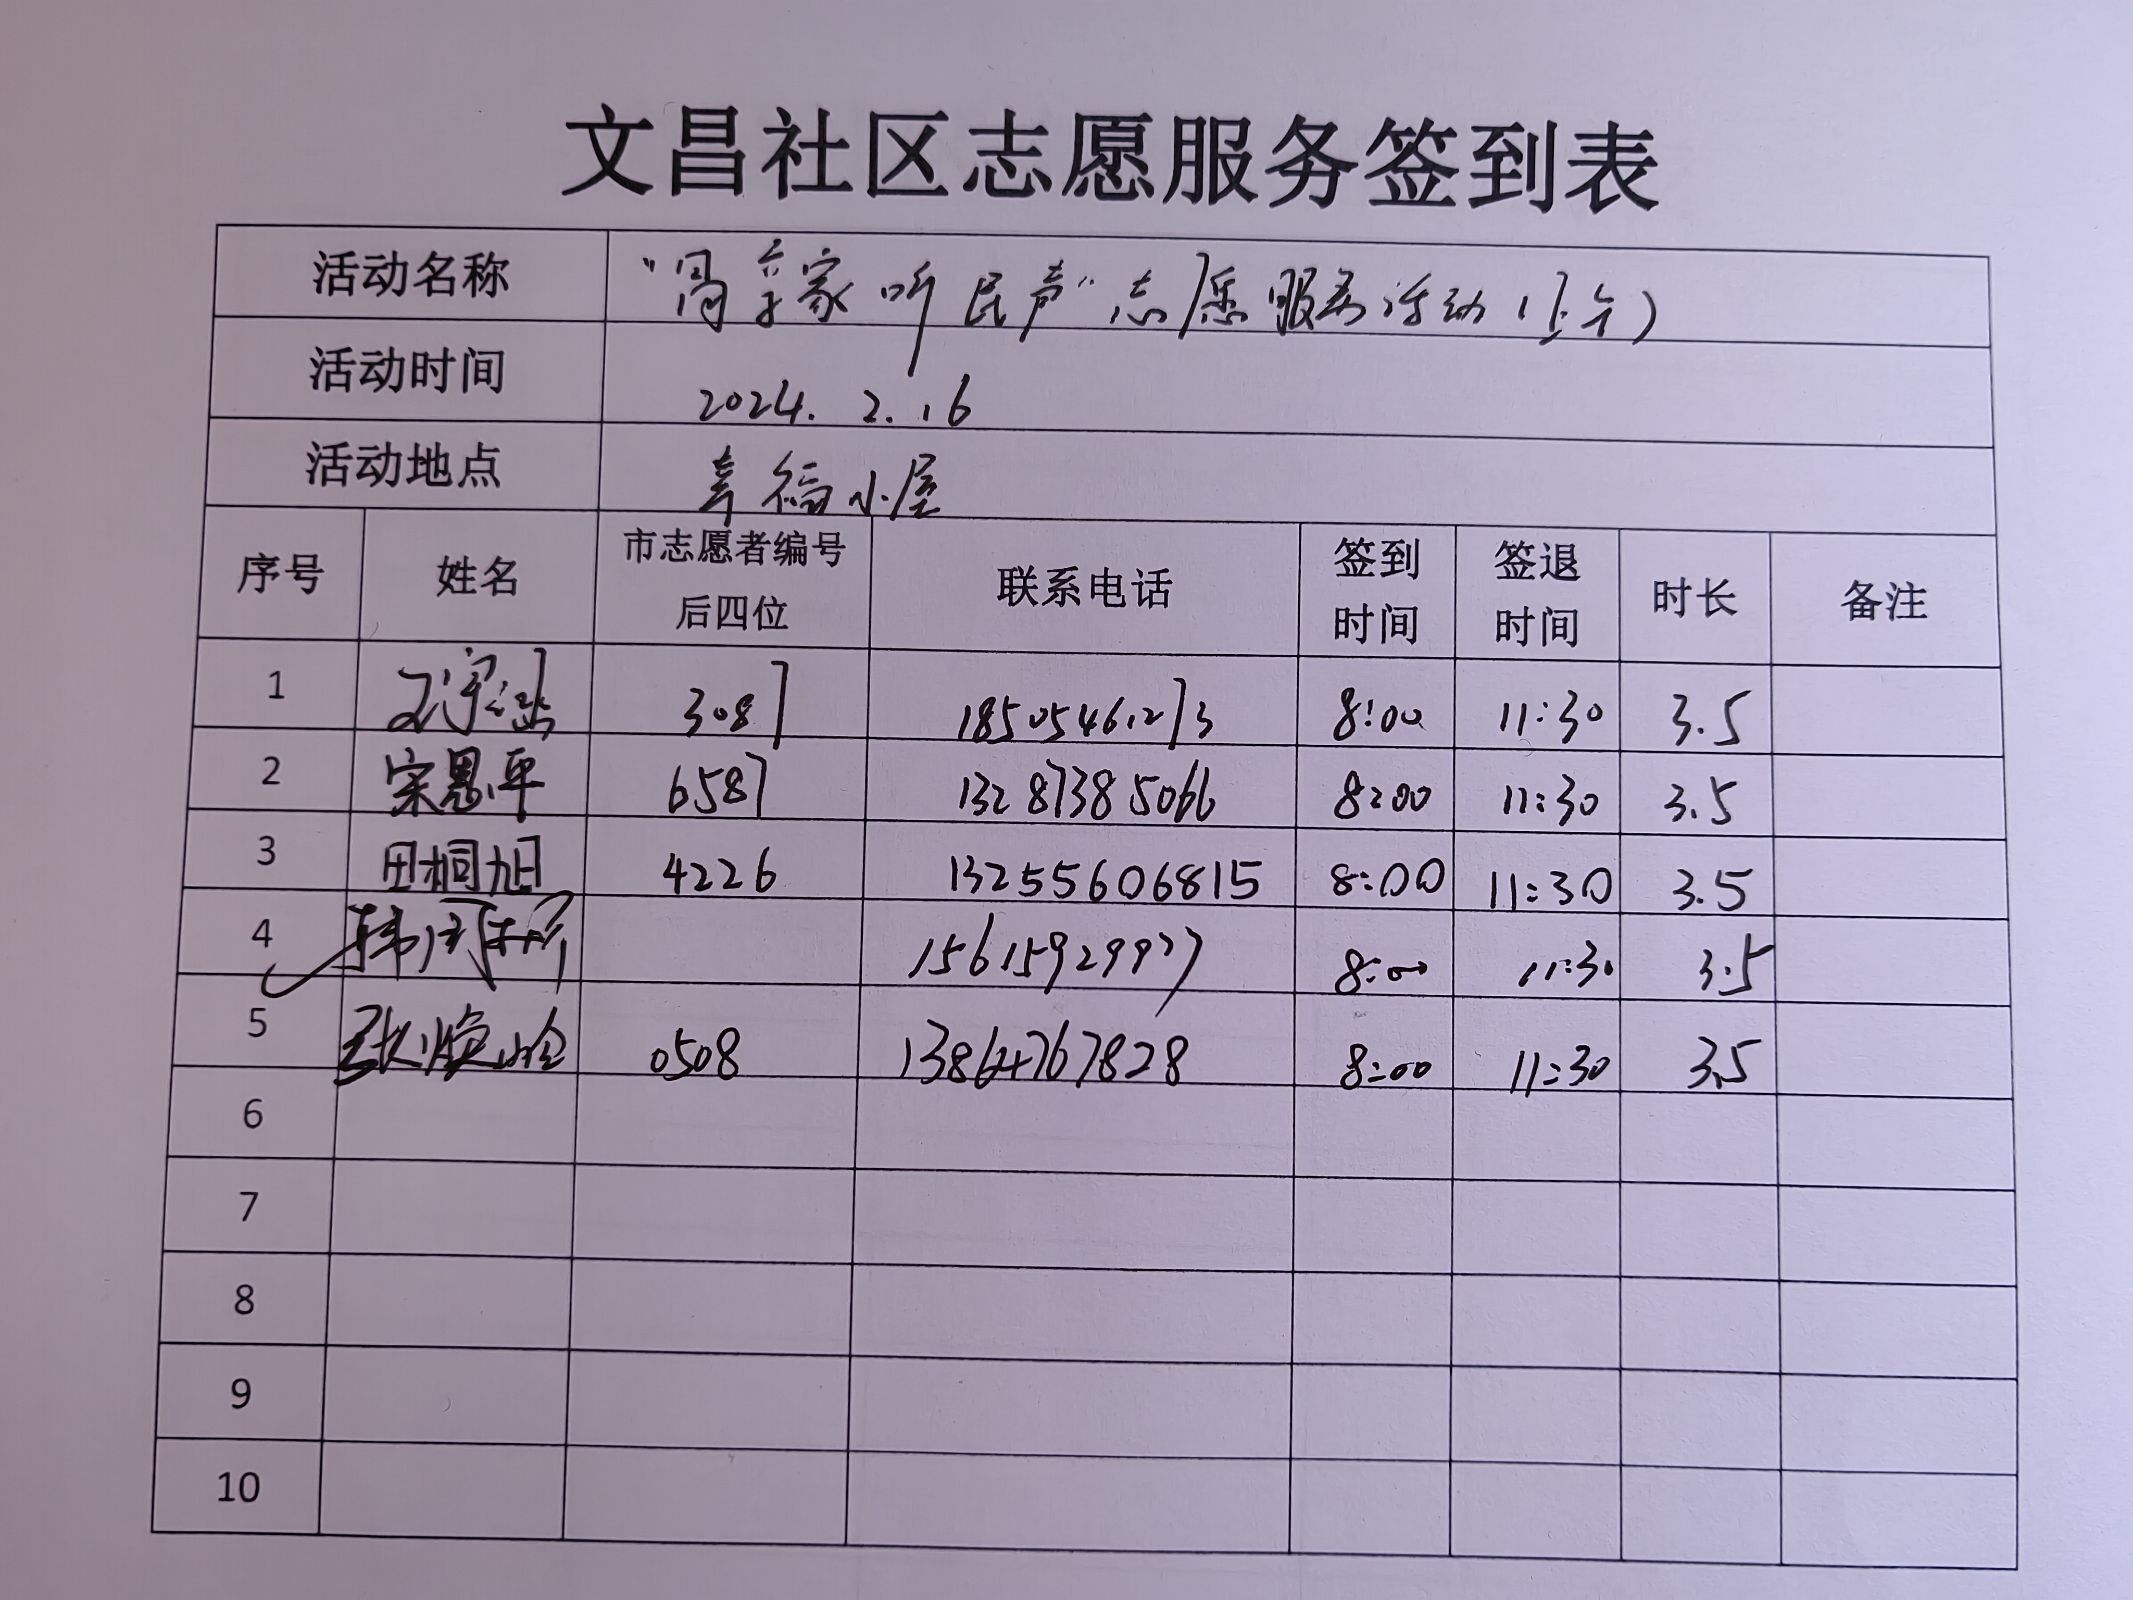 文昌社区志愿服务签到表
活动名称 "听民声"志愿服务活动(上午)
活动时间 2024.2.16
活动地点 幸福小屋
序号 姓名 市志愿者编号后四位 联系电话 签到时间 签退时间 时长 备注
1 3087 18505461273 8:00 11:30 3.5
2 宋恩平 6587 13287385066 8:00 11:30 3.5
3 田桐旭 4226 13255606815 8:00 11:30 3.5
4 8:00 11:30 3.5
5 0508 13864767828 8:00 11:30 3.5
6
7
8
9
10